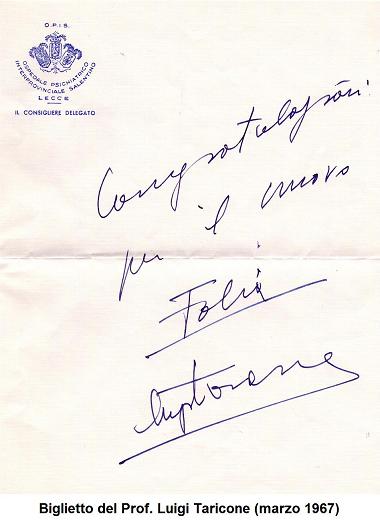 O.P.I.S.
OSPEDALE PSICHIATRICO
INTERPROVINCIALE SALENTINO
LECCE
IL CONSIGLIERE DELEGATO
Congratulazioni
per il nuovo
Biglietto del Prof. Luigi Taricone (marzo 1967)